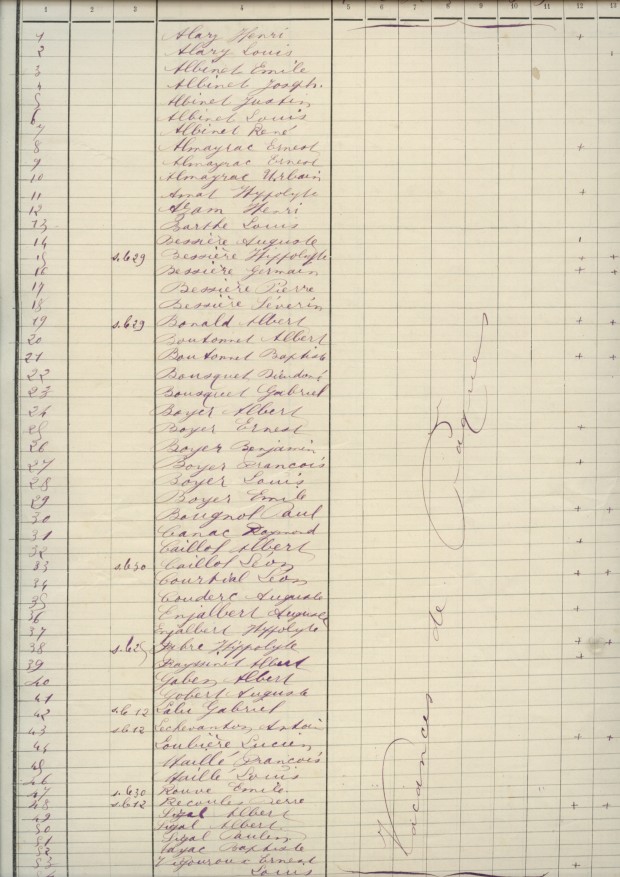 1 2 3 4 5 6 7 8 9 10 11 12 13
1 Alary Henri +
2 Alary Louis
3 Albinet Emile
4 Albinet Joseph
5 Albinet Justin
6 Albinet Louis
7 Albinet René
8 Almayrac Ernest +
9 Almayrac Ernest
10 Almayrac Urbain
11 Amat Hyppolyte +
12 Azam Henri
13 Barthe Louis
14 Bessière Auguste
15 s.b 29 Bessière Hippolyte + +
16 Bessière Germain + +
17 Bessière Pierre
18 Bessière Séverin
19 s.b 29 Bonald Albert + +
20 Boutonnet Albert
21 Boutonnet Baptiste + +
22 Bousquet Dieudoné
23 Bousquet Gabriel
24 Boyer Albert
25 Boyer Ernest +
26 Boyer Benjamin
27 Boyer François +
28 Boyer Louis
29 Boyer Emile
30 Bougnol Paul + +
31 Canac Raymond
32 Caillol Albert +
33 s.b 30 Caillol Léon + +
34 Courtial Léon
35 Couderc Auguste
36 Enjalbert Auguste +
37 Enjalbert Hyppolyte
38 s.b 29 Fabre Hippolyte + +
39 Fayssinet Albert +
40 Gaben Albert
41 Gobert Auguste
42 s.b 12 Lalu Gabriel
43 s.b 12 Lechevanton + +
44 Loubière Lucien
45 Maillé François
46 Maillé Louis
47 s.b 30 Rouve Emile
48 s.b 12 Recoules Pierre + +
49 Sigal Albert
50 Sigal Albert
51 Sigal Paulin
52 Vayac Baptiste
53 Vigouroux Ernest +
Louis
Vacances de Pâques